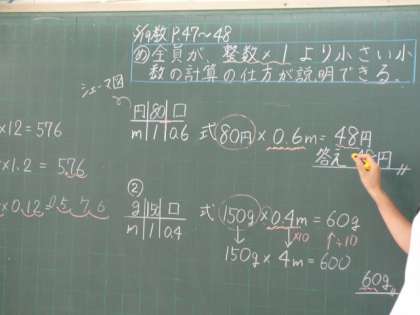 5/19 数 P.47〜48
め 全員が、整数×1より小さい小
数の計算の仕方が説明できる。
×12=576
×1.2=57.6
×0.12=5.76
円 80 □
m 1 0.6
式 80円×0.6m=48円
答え 円
②
g 150 □
m 1 0.4
式 150g×0.4m=60g
×10 ÷10
150g×4m=600
60g